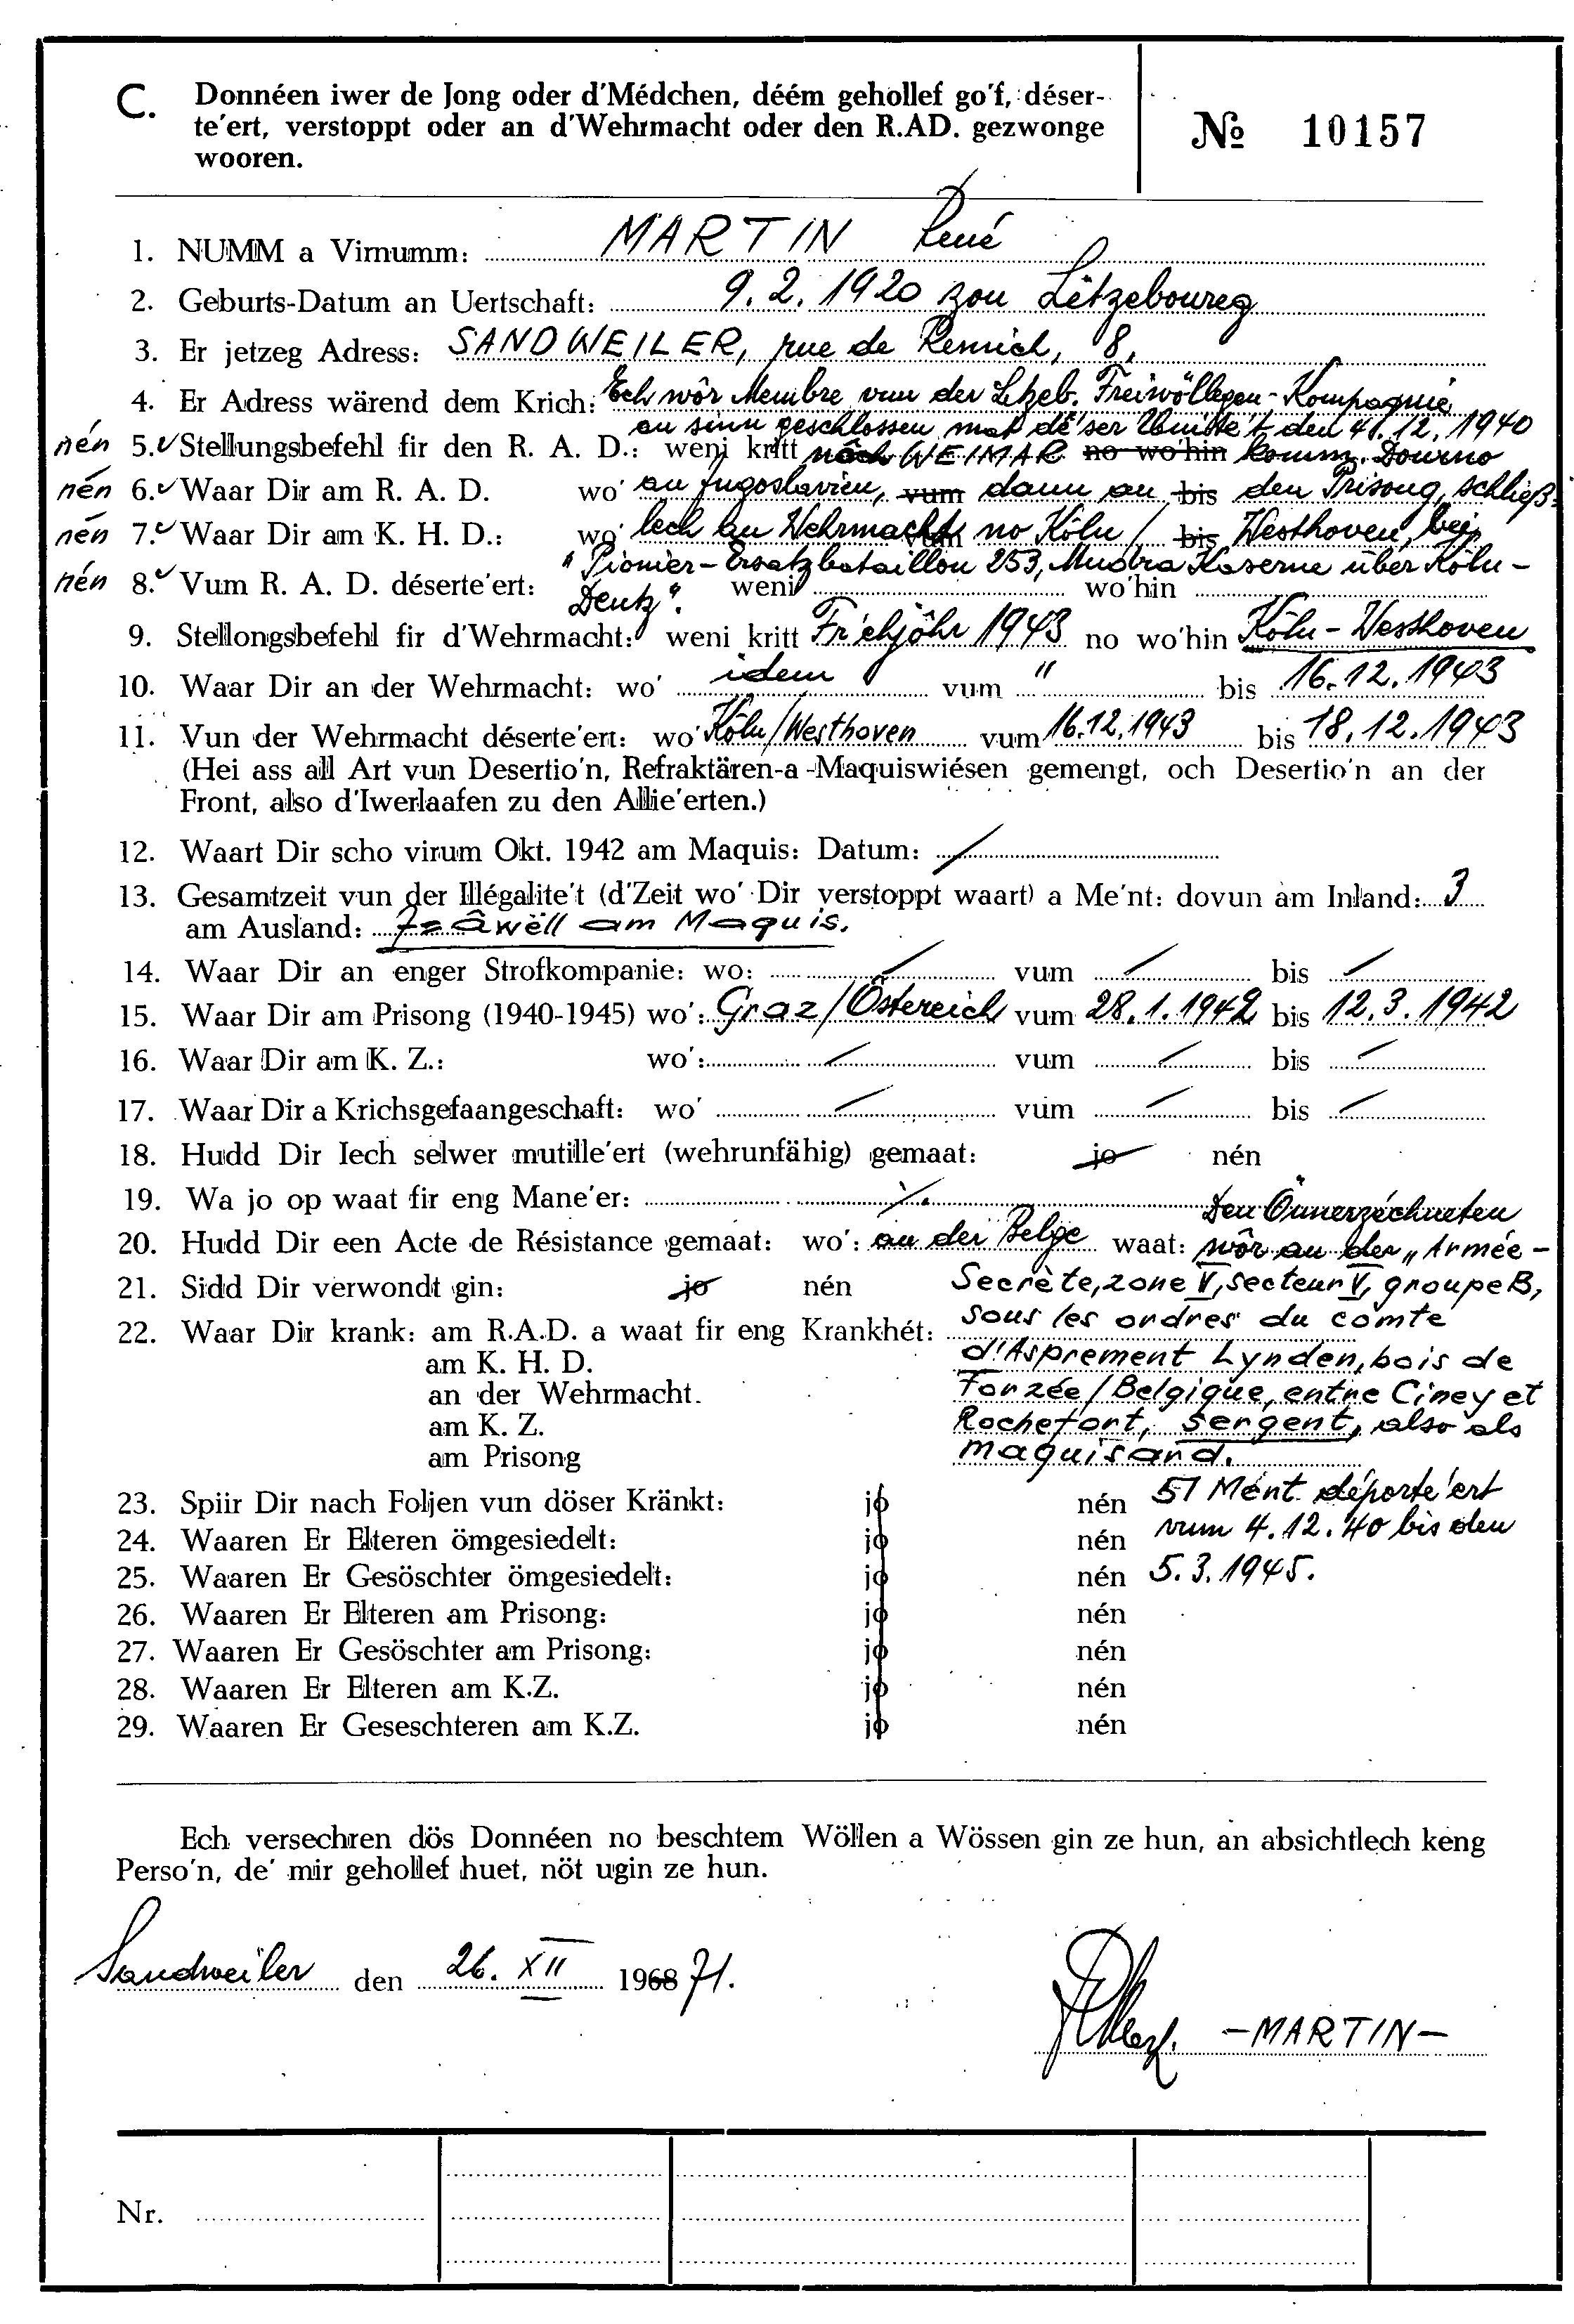 C. Donnéen iwer de Jong oder d'Médchen, déém gehollef go'f, déser-
te'ert, verstoppt oder an d'Wehrmacht oder den R.AD. gezwonge
wooren.
№ 10157
1. NUMM a Virnumm: MARTIN René
2. Geburts-Datum an Uertschaft: 9.2.1920 zou Lëtzebourg
3. Er jetzeg Adress: SANDWEILER, rue de Remich, 8,
4. Er Adress wärend dem Krich: Ech wôr Membre vun der Lëtzeb. Freiwöllegen-Kompagnie
an sinn geschlossen mat de'ser Unitée't den 4.12.1940
nén 5. Stellungsbefehl fir den R. A. D.: weni kritt nôch WEIMAR no wo'hin komm. Dourno
nén 6. Waar Dir am R. A. D. wo' an Jugoslavien, vum dann an bis den Prisong, schließ-
nén 7. Waar Dir am K. H. D.: wo' lech an Wehrmacht vum no Köln / bis Westhoven, bei
"Pionier-Ersatzbataillon 253, Mudra Kaserne über Köln-
nén 8. Vum R. A. D. déserte'ert: Deutz". weni wo'hin
9. Stellongsbefehl fir d'Wehrmacht: weni kritt Fréhjôhr 1943 no wo'hin Köln-Westhoven
10. Waar Dir an der Wehrmacht: wo' idem vum " bis 16.12.1943
11. Vun der Wehrmacht déserte'ert: wo' Köln/Westhoven vum 16.12.1943 bis 18.12.1943
(Hei ass all Art vun Desertio'n, Refraktären-a-Maquiswiésen gemengt, och Desertio'n an der
Front, also d'Iwerlaafen zu den Allie'erten.)
12. Waart Dir scho virum Okt. 1942 am Maquis: Datum: /
13. Gesamtzeit vun der Illégalite't (d'Zeit wo' Dir verstoppt waart) a Me'nt: dovun am Inland: 3
am Ausland: âwëll am Maquis.
14. Waar Dir an enger Strofkompanie: wo: / vum / bis /
15. Waar Dir am Prisong (1940-1945) wo': Graz/Östereich vum 28.1.1942 bis 12.3.1942
16. Waar Dir am K. Z.: wo': / vum / bis /
17. Waar Dir a Krichsgefaangeschaft: wo' / vum / bis /
18. Hudd Dir Iech selwer mutille'ert (wehrunfähig) gemaat: jo nén
19. Wa jo op waat fir eng Mane'er: ./.
Den Önnerzéchneten
20. Hudd Dir een Acte de Résistance gemaat: wo': an der Belge waat: wôr an der „Armée-
21. Sidd Dir verwondt gin: jo nén Secrète, zone V, secteur V, groupe B,
sous les ordres du comte
22. Waar Dir krank: am R.A.D. a waat fir eng Krankhét:
am K. H. D. d'Asprement Lynden, bois de
an der Wehrmacht. Forzée/Belgique, entre Ciney et
am K. Z. Rochefort, sergent, also als
am Prisong maquisard.
23. Spiir Dir nach Foljen vun döser Kränkt: jo nén 51 Ment déporte'ert
24. Waaren Er Elteren ömgesiedelt: jo nén vum 4.12.40 bis den
25. Waaren Er Gesöschter ömgesiedelt: jo nén 5.3.1945.
26. Waaren Er Elteren am Prisong: jo nén
27. Waaren Er Gesöschter am Prisong: jo nén
28. Waaren Er Elteren am K.Z. jo nén
29. Waaren Er Geseschteren am K.Z. jo nén
Ech versechren dös Donnéen no beschtem Wöllen a Wössen gin ze hun, an absichtlech keng
Perso'n, de' mir gehollef huet, nöt ugin ze hun.
Sandweiler den 26. XII 1968 71.
-MARTIN-
Nr.